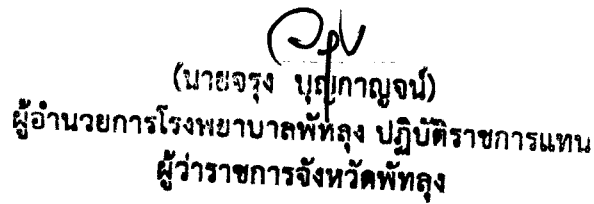 (นายจรุง บุญกาญจน์)
ผู้อำนวยการโรงพยาบาลพัทลุง ปฏิบัติราชการแทน
ผู้ว่าราชการจังหวัดพัทลุง